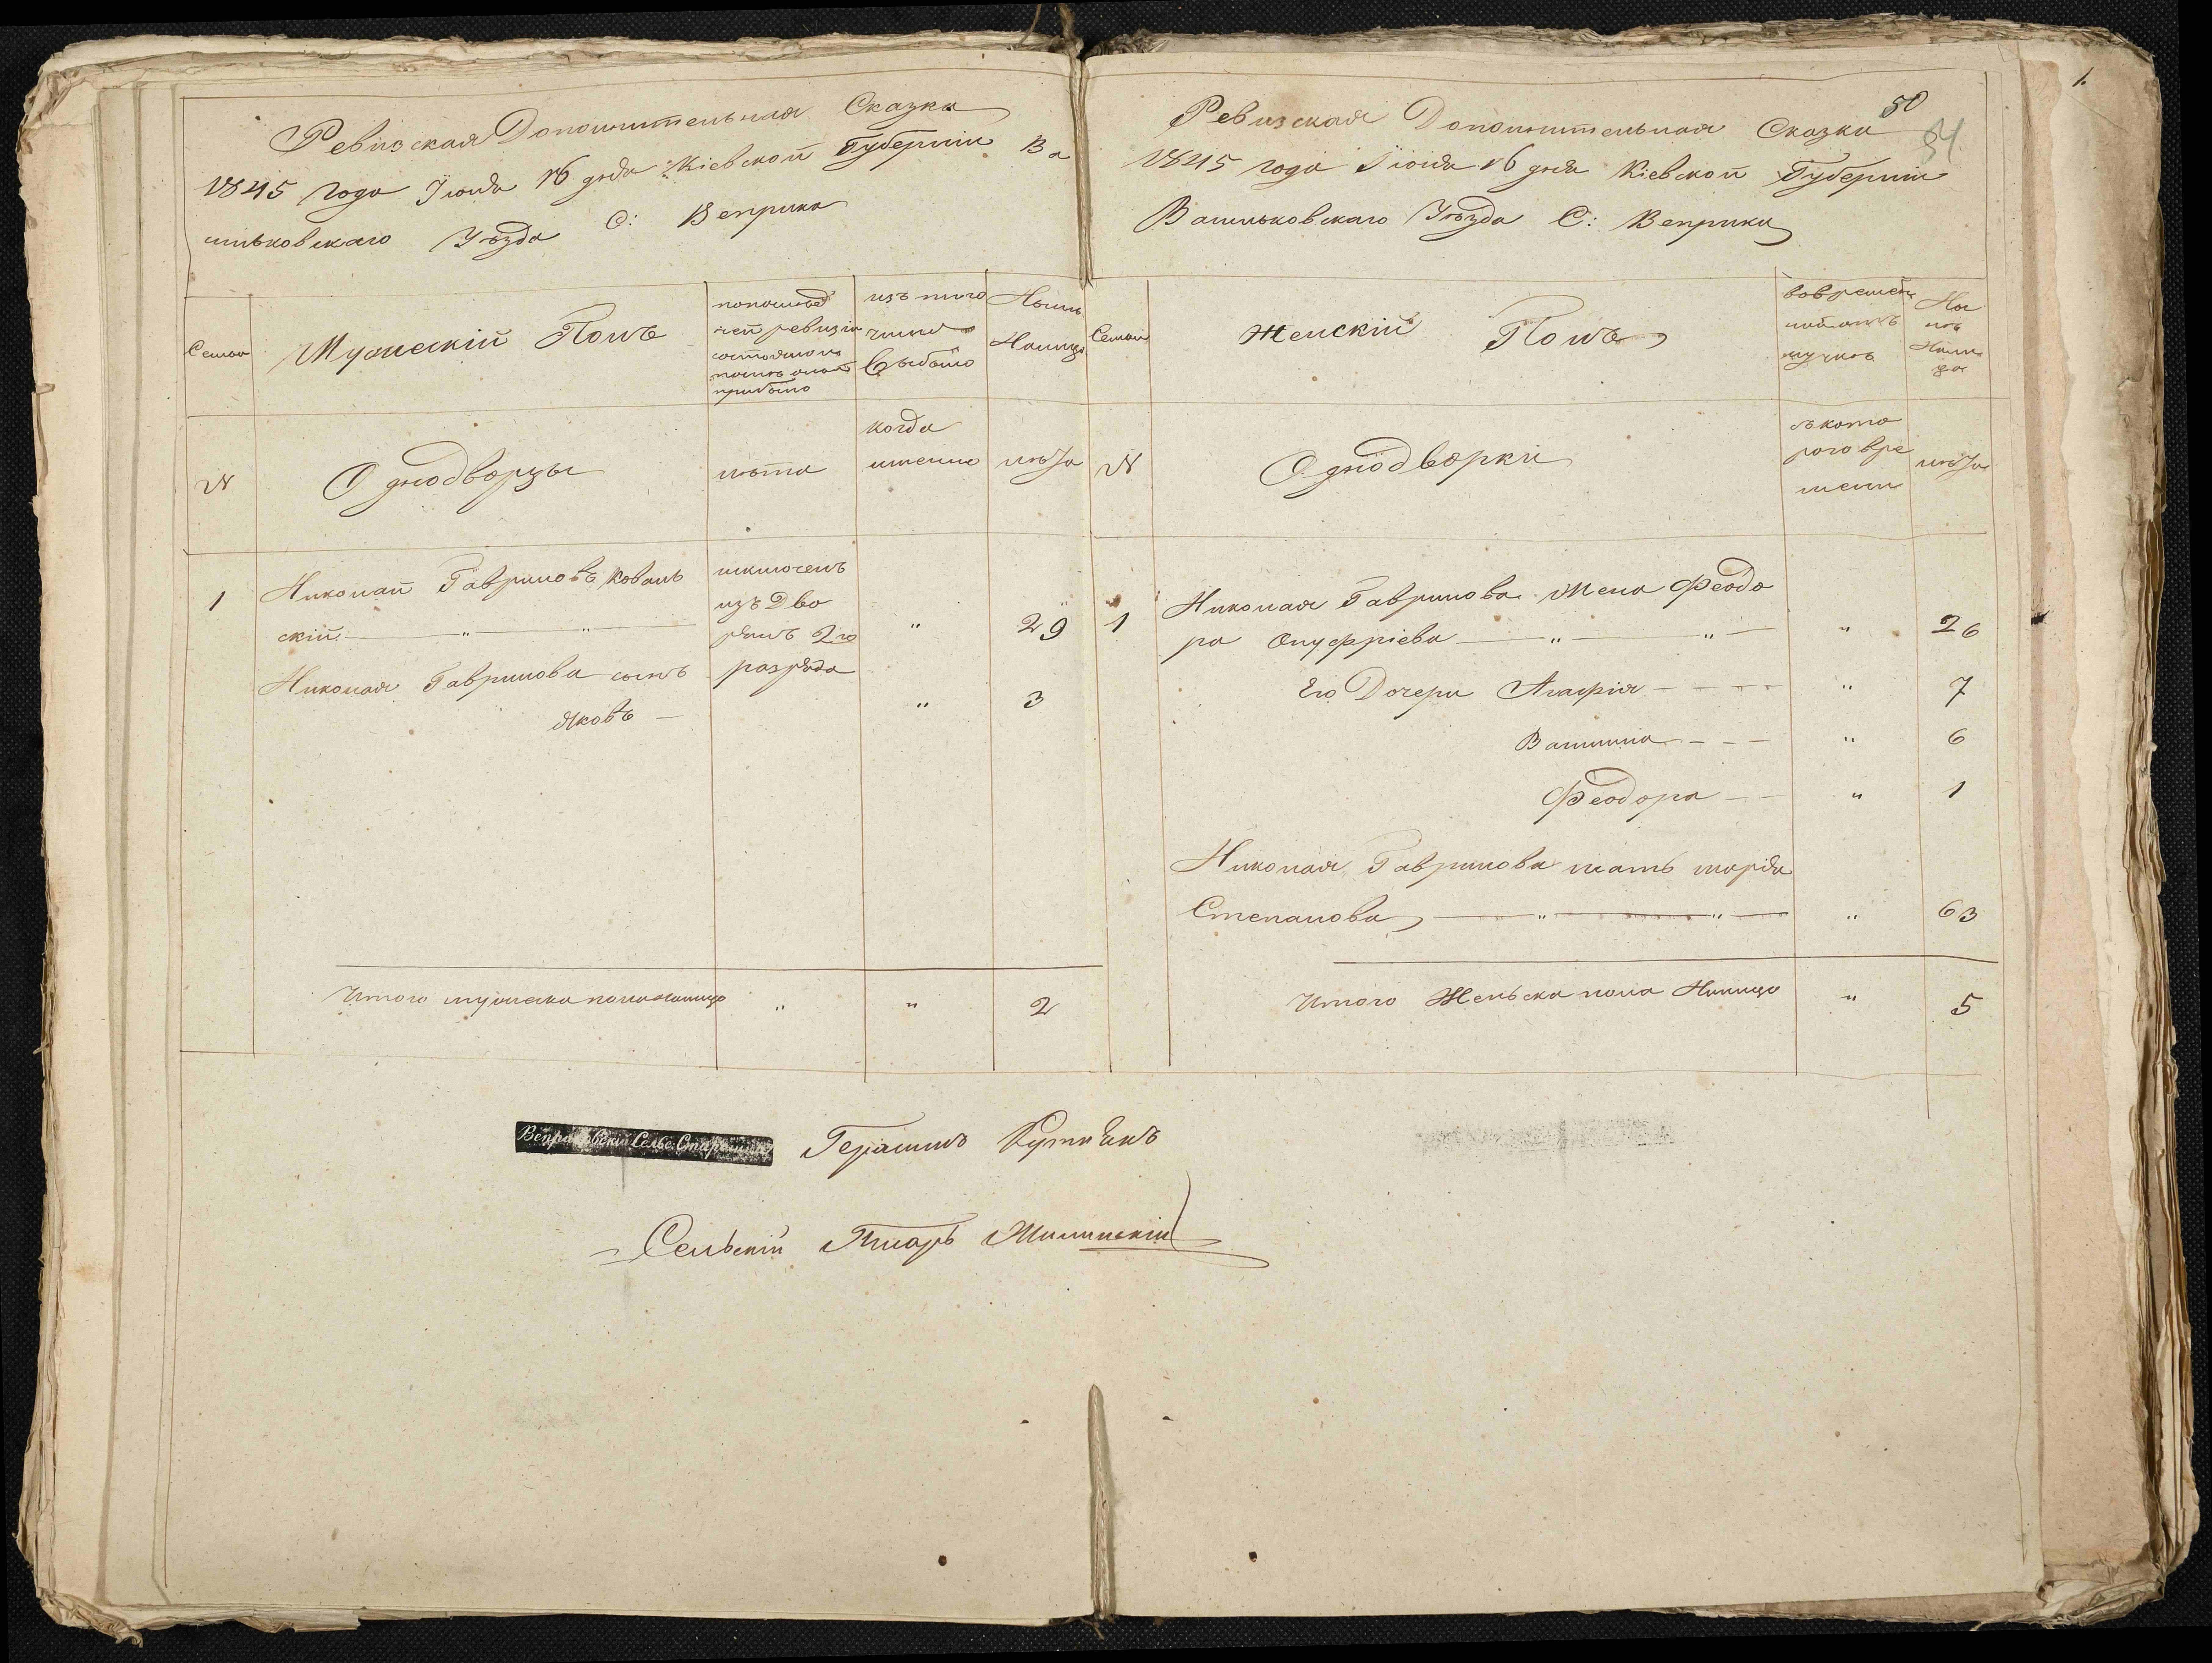 Ревизская Дополнительная Сказка
1845 года Іюня 16 дня Кіевской Губерніи Ва
сильковскаго Уѣзда С: Веприка
Семьи
Мужескій Полъ
по послѣд
ней ревизіи
состояло и
послѣ оной
прибыло
изъ того
числа
выбыло
Нынѣ
На лицо
№
Однодворцы
лѣта
когда
именно
лѣта
1
Николай Гавриловъ Коваль
скій — " — " —
исключенъ
изъ Дво
рянъ 2го
разряда
" 29
Николая Гаврилова сынъ
Яковъ —
" 3
Итого мужеска пола налицо " " 2
50
Ревизская Дополнительная Сказка
1845 года Іюня 16 дня Кіевской Губерніи
Васильковскаго Уѣзда С: Веприка
Семьи
Женскій Полъ
во времен
ной отлучкѣ
На лицо
№
Однодворки
съ кото
раго вре
мени
лѣта
1 Николая Гаврилова Жена Феодо
ра Онуфріева — " — " — " 26
Его Дочери Агафія - - - - " 7
Василина - - - " 6
Феодора - - " 1
Николая Гаврилова мать марія
Степанова — " — " — " 63
Итого Женска пола Налицо " 5
1.
Веприковскій Сельс. Старшина Герасимъ
Сельскій Писарь